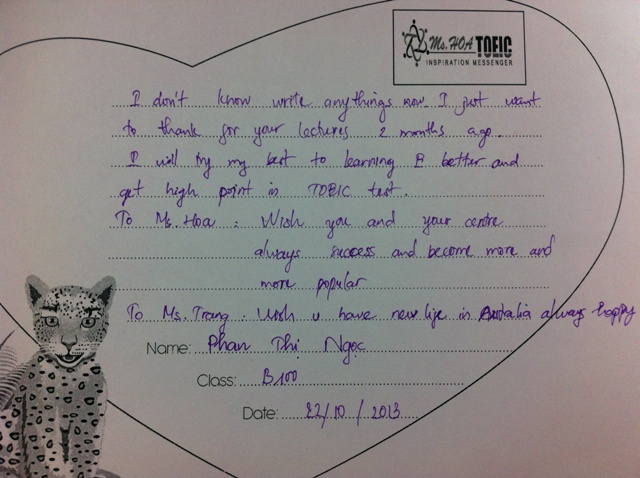 Ms. HOA TOEIC
INSPIRATION MESSENGER
I don't know write anythings now I just want
to thank for your lectures 2 months ago.
I will try my best to learning E better and
get high point in TOEIC test.
To Ms. Hoa : Wish you and your centre
always success and become more and
more popular
To Ms. Trang : Wish u have new life in Australia always happy
Name: Phan Thị Ngọc
Class: B100
Date: 22/10/2013